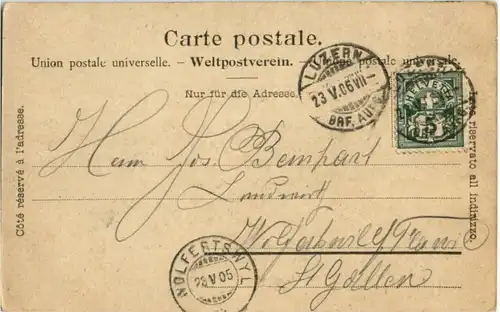 Carte postale.
Union postale universelle. — Weltpostverein. — Unione postale universale.
Nur für die Adresse.
LUZERN
23.V.05 VII—
BRF. AUFG.
HELVETIA
5
Côté réservé à l'adresse.
Lato riservato all indirizzo.
Herrn Jos. Bernhart
Landwirt
St Gallen
WOLFERTSWYL
23.V.05